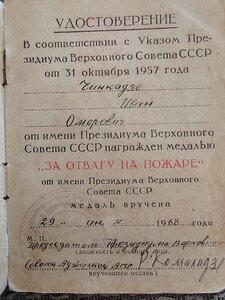 УДОСТОВЕРЕНИЕ
В соответствии с Указом Пре-
зидиума Верховного Совета СССР
от 31 октября 1957 года
Чинкадзе
Иван
Омерович
от имени Президиума Верховного
Совета СССР награжден медалью
„ЗА ОТВАГУ НА ПОЖАРЕ“
от имени Президиума Верховного
Совета СССР
медаль вручена
29 1968 года
М. П.
председатель Президиума Верховного
Совета Аджарской АССР
вручившего медаль)